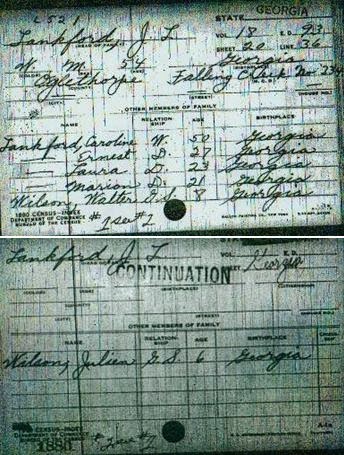 L 521 GEORGIA
STATE
Lankford J. L. VOL. 18 E.D. 93
(HEAD OF FAMILY) SHEET 20 LINE 36
W. M. 54 Georgia
(COLOR) (BIRTHPLACE)
Oglethorpe Falling Creek No 234
(CITY) (STREET) (HOUSE NO.)
OTHER MEMBERS OF FAMILY
NAME RELATION SHIP AGE BIRTHPLACE
Lankford, Caroline W. 50 Georgia
— Ernest D. 27 Georgia
— Laura D. 23 Georgia
— Marion D. 21 Georgia
Wilson, Walter G.S. 8 Georgia
1880 CENSUS-INDEX
DEPARTMENT OF COMMERCE
BUREAU OF THE CENSUS
Lankford J. L. VOL. E.D.
CONTINUATION Georgia
(COLOR) (BIRTHPLACE)
(CITY) (STREET)
OTHER MEMBERS OF FAMILY
NAME RELATION SHIP AGE BIRTHPLACE
Wilson, Julien G.S. 6 Georgia
CENSUS-INDEX
DEPARTMENT OF COMMERCE
BUREAU OF THE CENSUS
1880